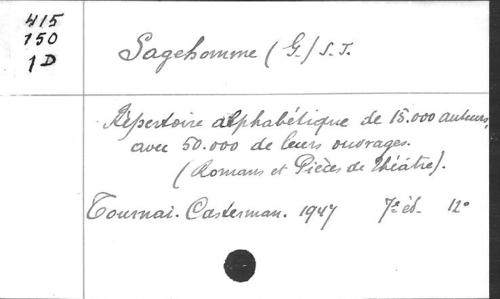 415
150
1D
Sagehomme (G.) S.J.
Répertoire alphabétique de 15.000 auteurs,
avec 50.000 de leurs ouvrages.
(Romans et Pièces de théâtre).
Tournai. Casterman. 1947 7e éd. 12°